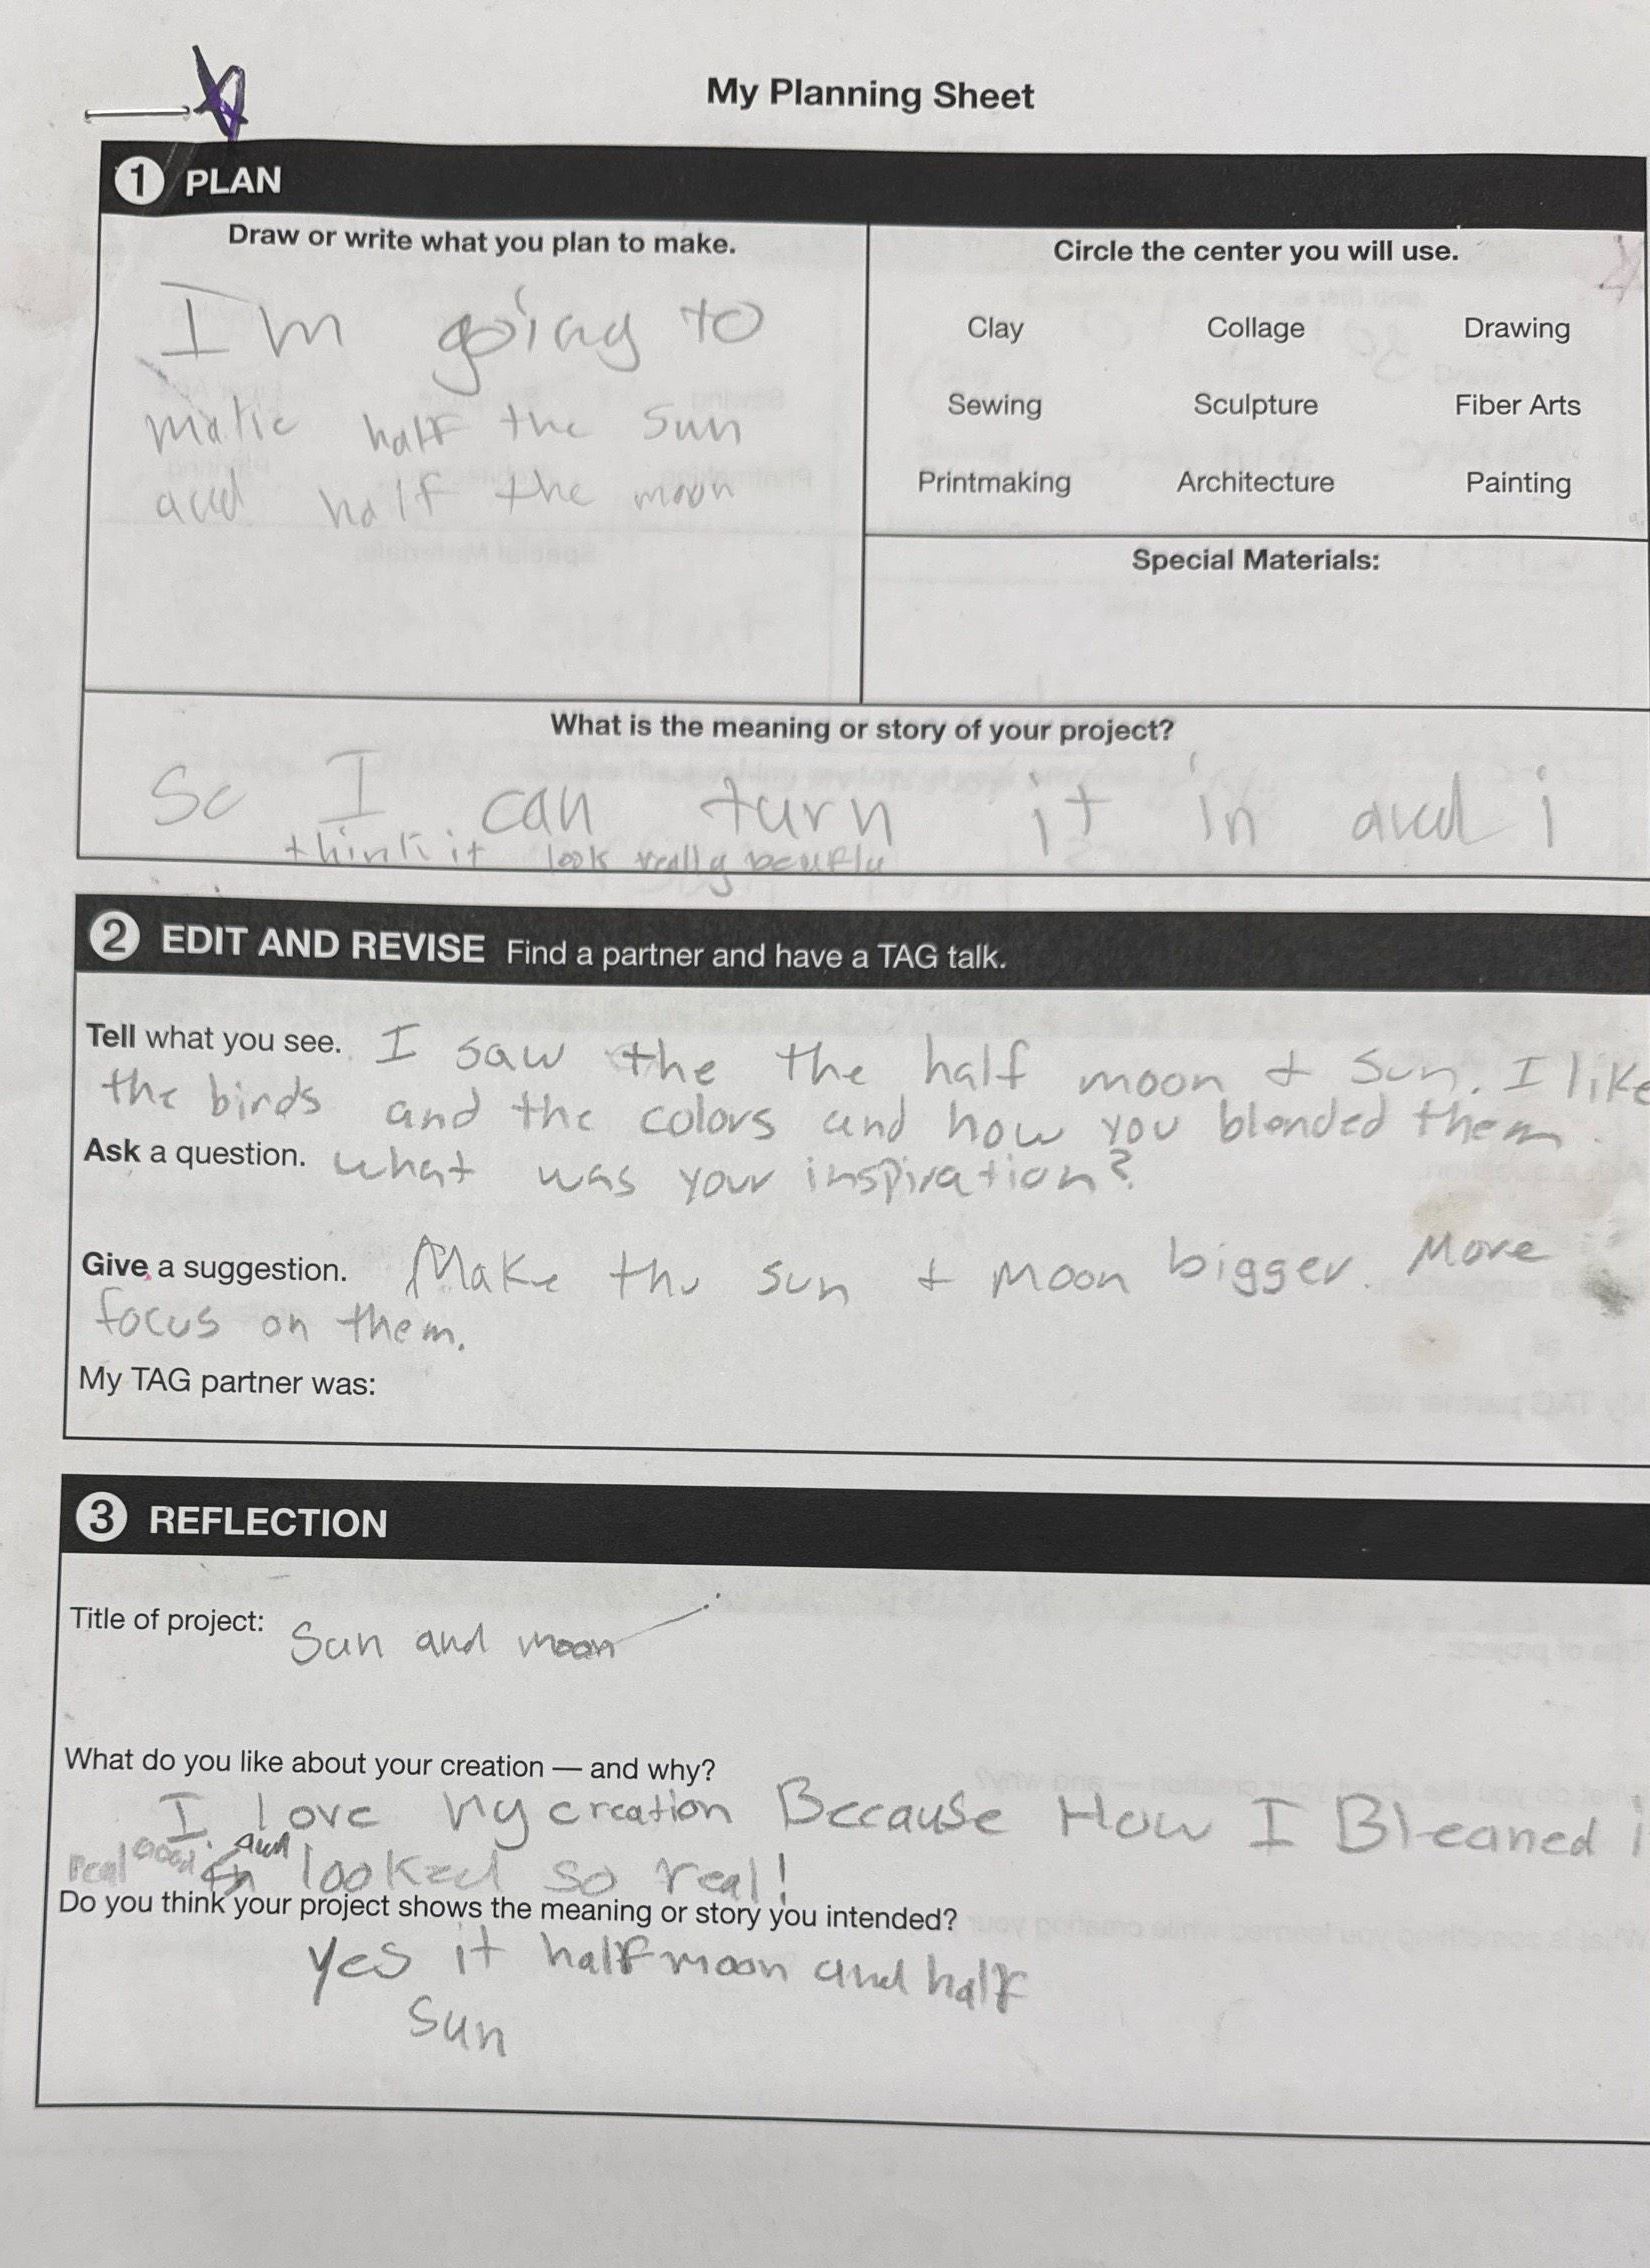 My Planning Sheet
1 PLAN
Draw or write what you plan to make.
I'm going to
make half the sun
and half the moon
Circle the center you will use.
Clay Collage Drawing
Sewing Sculpture Fiber Arts
Printmaking Architecture Painting
Special Materials:
What is the meaning or story of your project?
So I can turn it in and i
think it look really beurflu
2 EDIT AND REVISE Find a partner and have a TAG talk.
Tell what you see. I saw the the half moon & sun. I like
the birds and the colors and how you blended them.
Ask a question. what was your inspiration?
Give a suggestion. Make the sun & moon bigger. More
focus on them.
My TAG partner was:
3 REFLECTION
Title of project: Sun and moon
What do you like about your creation — and why?
I love my creation Because How I Bleaned i
real Good. and looked so real!
Do you think your project shows the meaning or story you intended?
yes it half moon and half
sun